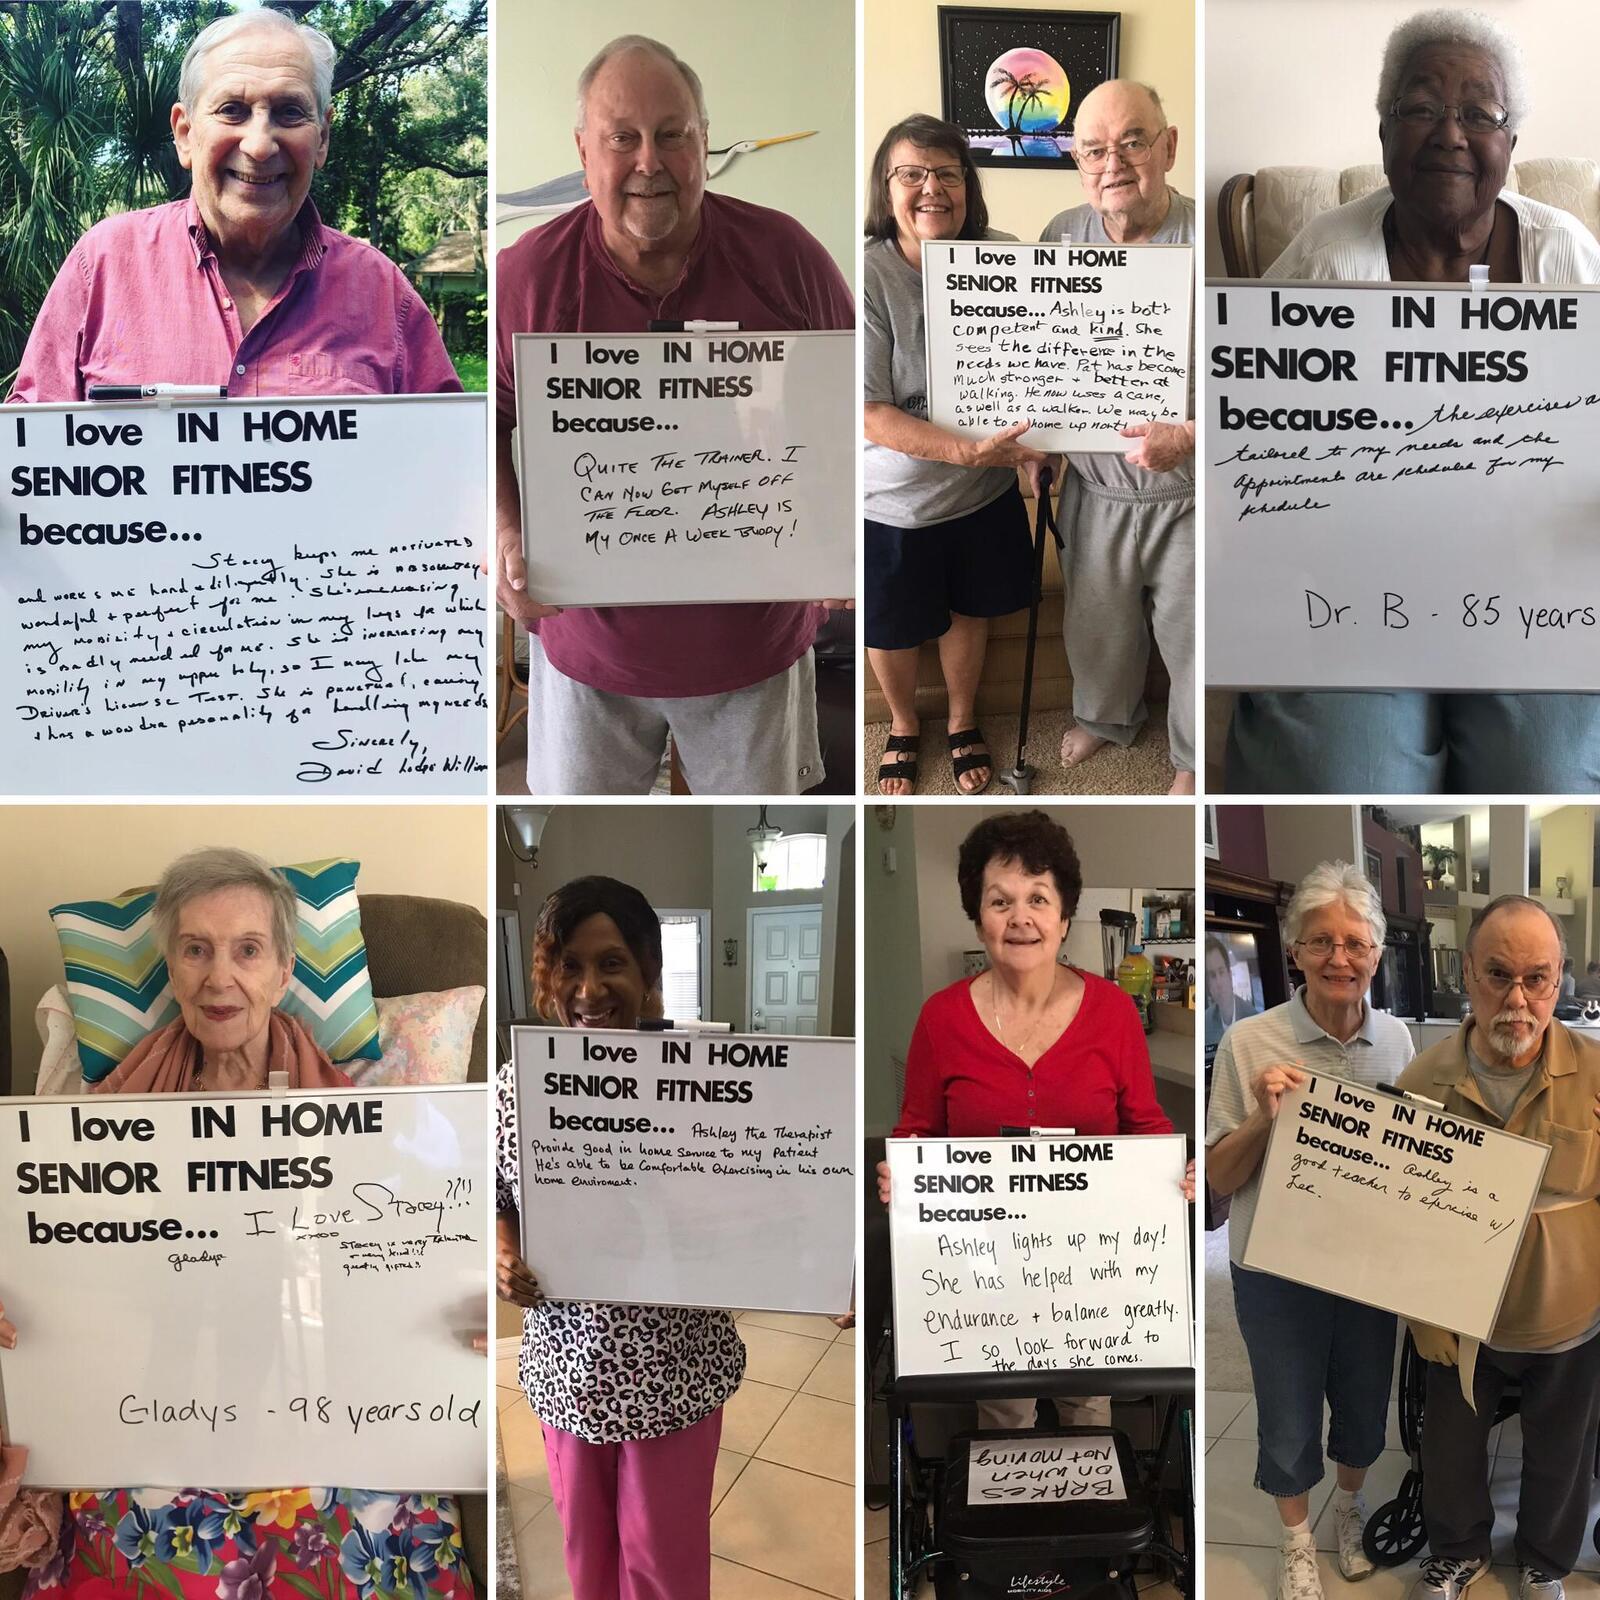 I love IN HOME
SENIOR FITNESS
because...
Stacey keeps me motivated
and works me hard & diligently. She is absolutely
wonderful & perfect for me. She's increasing
my mobility & circulation in my legs for which
is badly needed for me. She is increasing my
mobility in my upper body, so I may take my
Driver's License Test. She is punctual, caring
& has a wonder personality for handling my needs
Sincerely,
David Lodge William
I love IN HOME
SENIOR FITNESS
because...
QUITE THE TRAINER. I
CAN NOW GET MYSELF OFF
THE FLOOR. ASHLEY IS
MY ONCE A WEEK BUDDY!
I love IN HOME
SENIOR FITNESS
because... Ashley is both
competent and kind. She
sees the difference in the
needs we have. Pat has become
much stronger + better at
walking. He now uses a cane,
as well as a walker. We may be
able to home up north
I love IN HOME
SENIOR FITNESS
because... the exercises a
tailored to my needs and the
appointments are scheduled for my
schedule
Dr. B - 85 years
I love IN HOME
SENIOR FITNESS
because... I Love Stacey!!!!
xxoo
Stacey is very talented
& very kind!!!
greatly gifted!!
Gladys
Gladys - 98 years old
I love IN HOME
SENIOR FITNESS
because... Ashley the Therapist
Provide good in home service to my Patient
He's able to be Comfortable Exercising in his own
home enviroment.
I love IN HOME
SENIOR FITNESS
because...
Ashley lights up my day!
She has helped with my
endurance + balance greatly.
I so look forward to
the days she comes.
BRAKES
on when
Not moving
Lifestyle
MOBILITY AIDS
I love IN HOME
SENIOR FITNESS
because... Ashley is a
good teacher to exercise w/
Lee.